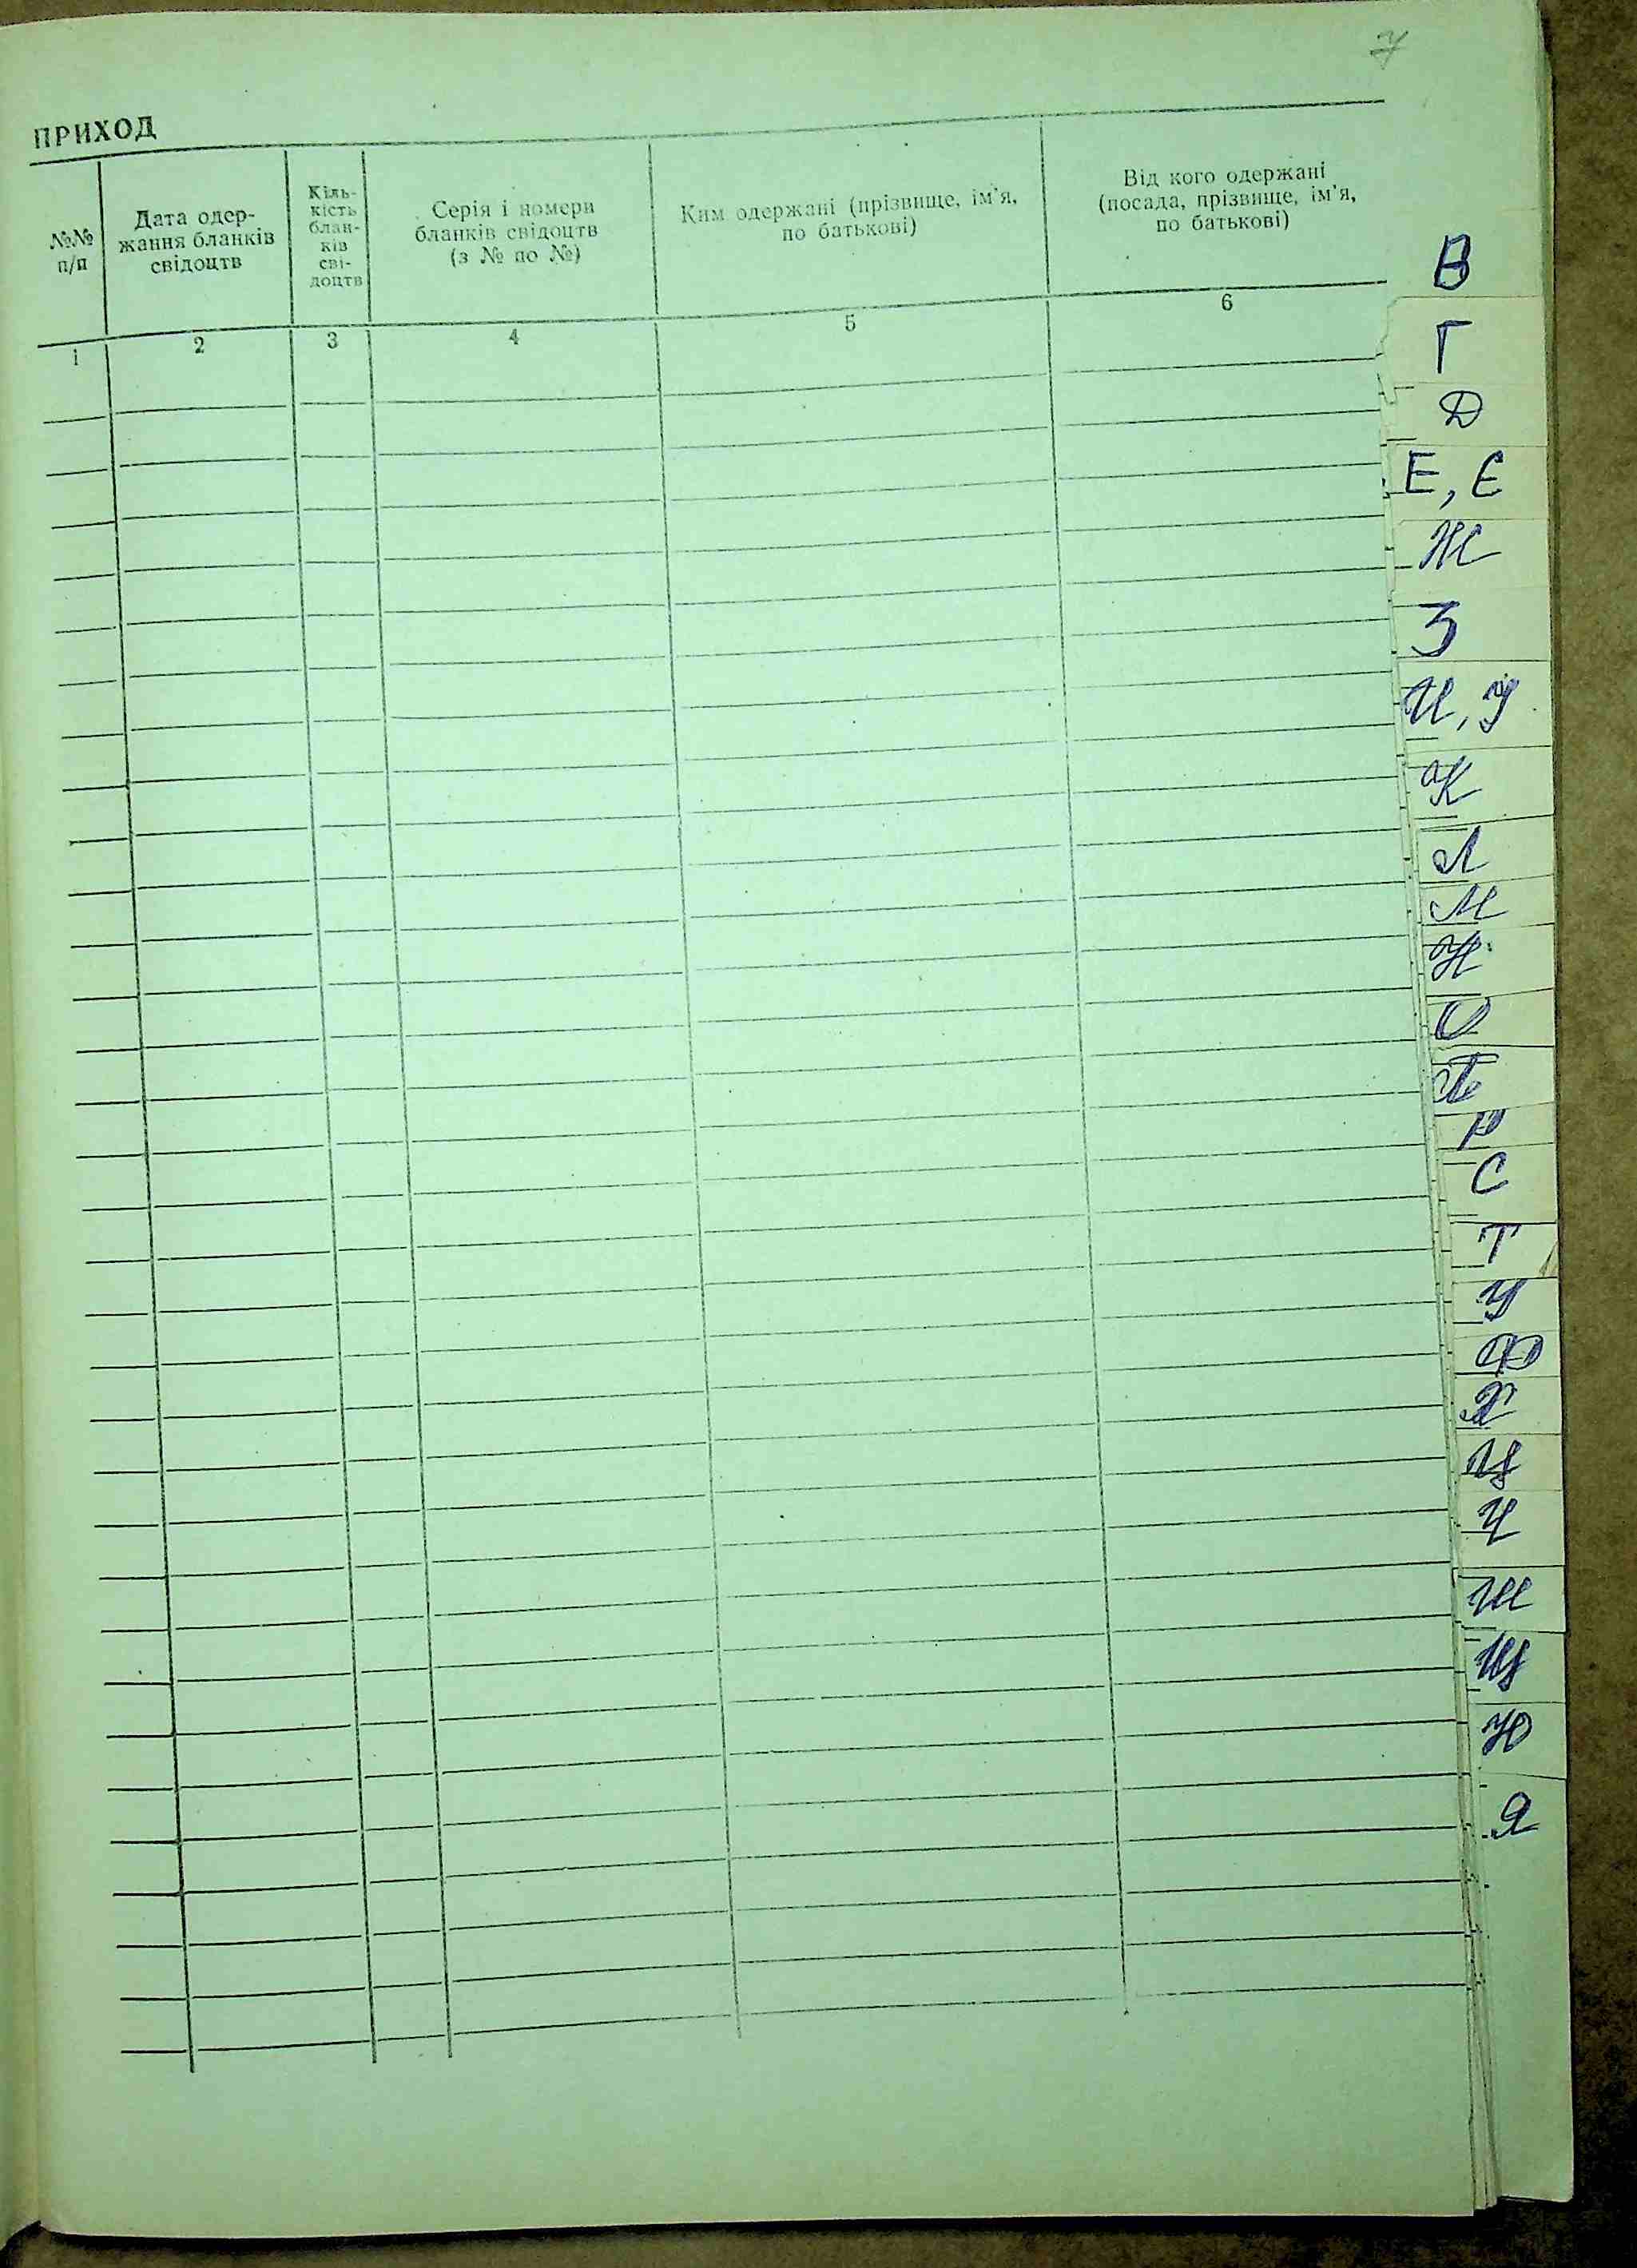 7
ПРИХОД
№№
п/п
Дата одер-
жання бланків
свідоцтв
Кіль-
кість
блан-
ків
сві-
доцтв
Серія і номери
бланків свідоцтв
(з № по №)
Ким одержані (прізвище, ім'я,
по батькові)
Від кого одержані
(посада, прізвище, ім'я,
по батькові)
1
2
3
4
5
6
В
Г
Д
Е, Є
Ж
З
И, Й
К
Л
М
Н
О
П
Р
С
Т
У
Ф
Х
Ц
Ч
Ш
Щ
Ю
Я